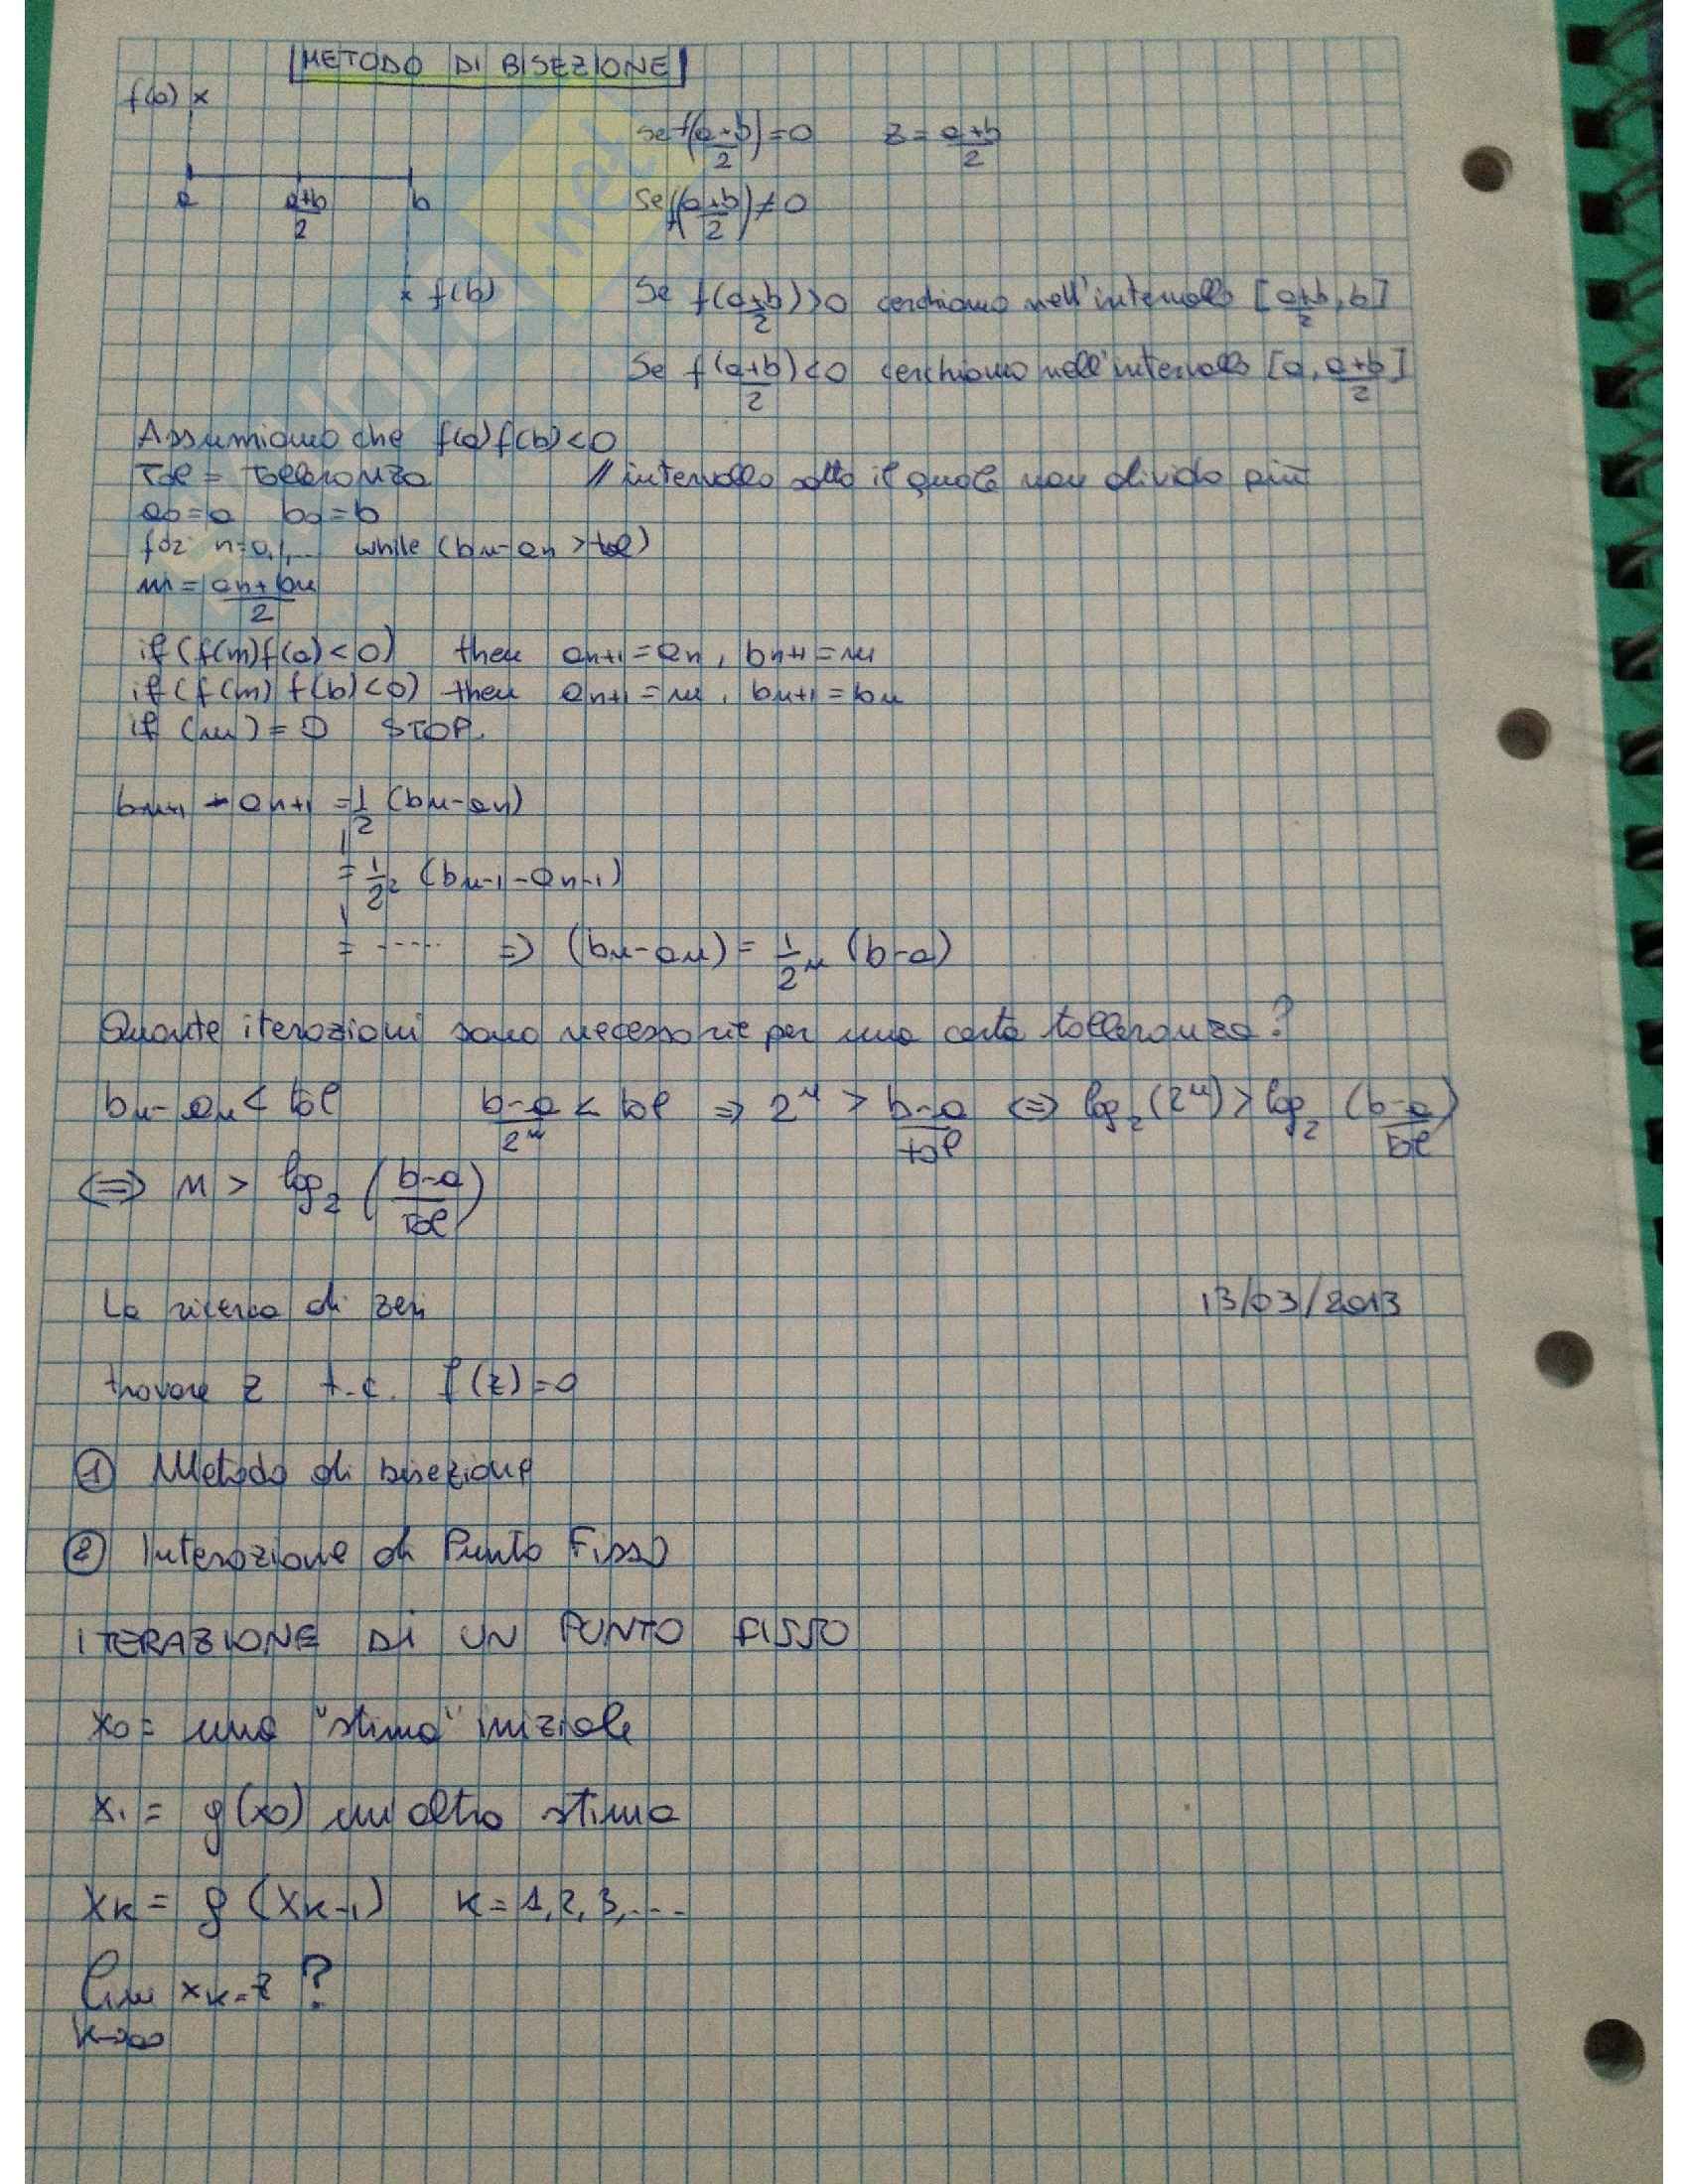 METODO DI BISEZIONE
f(a) x
Se f(a+b/2)=0 z = a+b/2
a a+b/2 b
Se f(a+b/2)≠0
x f(b)
Se f(a+b/2)>0 cerchiamo nell'intervallo [a+b/2, b]
Se f(a+b/2)<0 cerchiamo nell'intervallo [a, a+b/2]
Assumiamo che f(a)f(b)<0
Tol = Tolleranza // intervallo sotto il quale non divido più
a0=a b0=b
for n=0,1,... while (bn-an>tol)
m = an+bn/2
if (f(m)f(a)<0) then an+1=an, bn+1=m
if (f(m)f(b)<0) then an+1=m, bn+1=bn
if (m)=0 STOP.
bn+1 - an+1 = 1/2 (bn-an)
= 1/2² (bn-1-an-1)
= ...... => (bn-an) = 1/2ⁿ (b-a)
Quante iterazioni sono necessarie per una certa tolleranza?
bn-an < tol b-a/2ⁿ < tol => 2ⁿ > b-a/tol <=> log₂(2ⁿ) > log₂ (b-a/tol)
<=> n > log₂ (b-a/Tol)
La ricerca di zeri 13/03/2013
trovare z t.c. f(z)=0
① Metodo di bisezione
② Interazione di Punto Fisso
ITERAZIONE DI UN PUNTO FISSO
x0 = una "stima" iniziale
x1 = g(x0) un altra stima
xk = g(xk-1) k=1,2,3,...
lim xk=z ?
k->∞